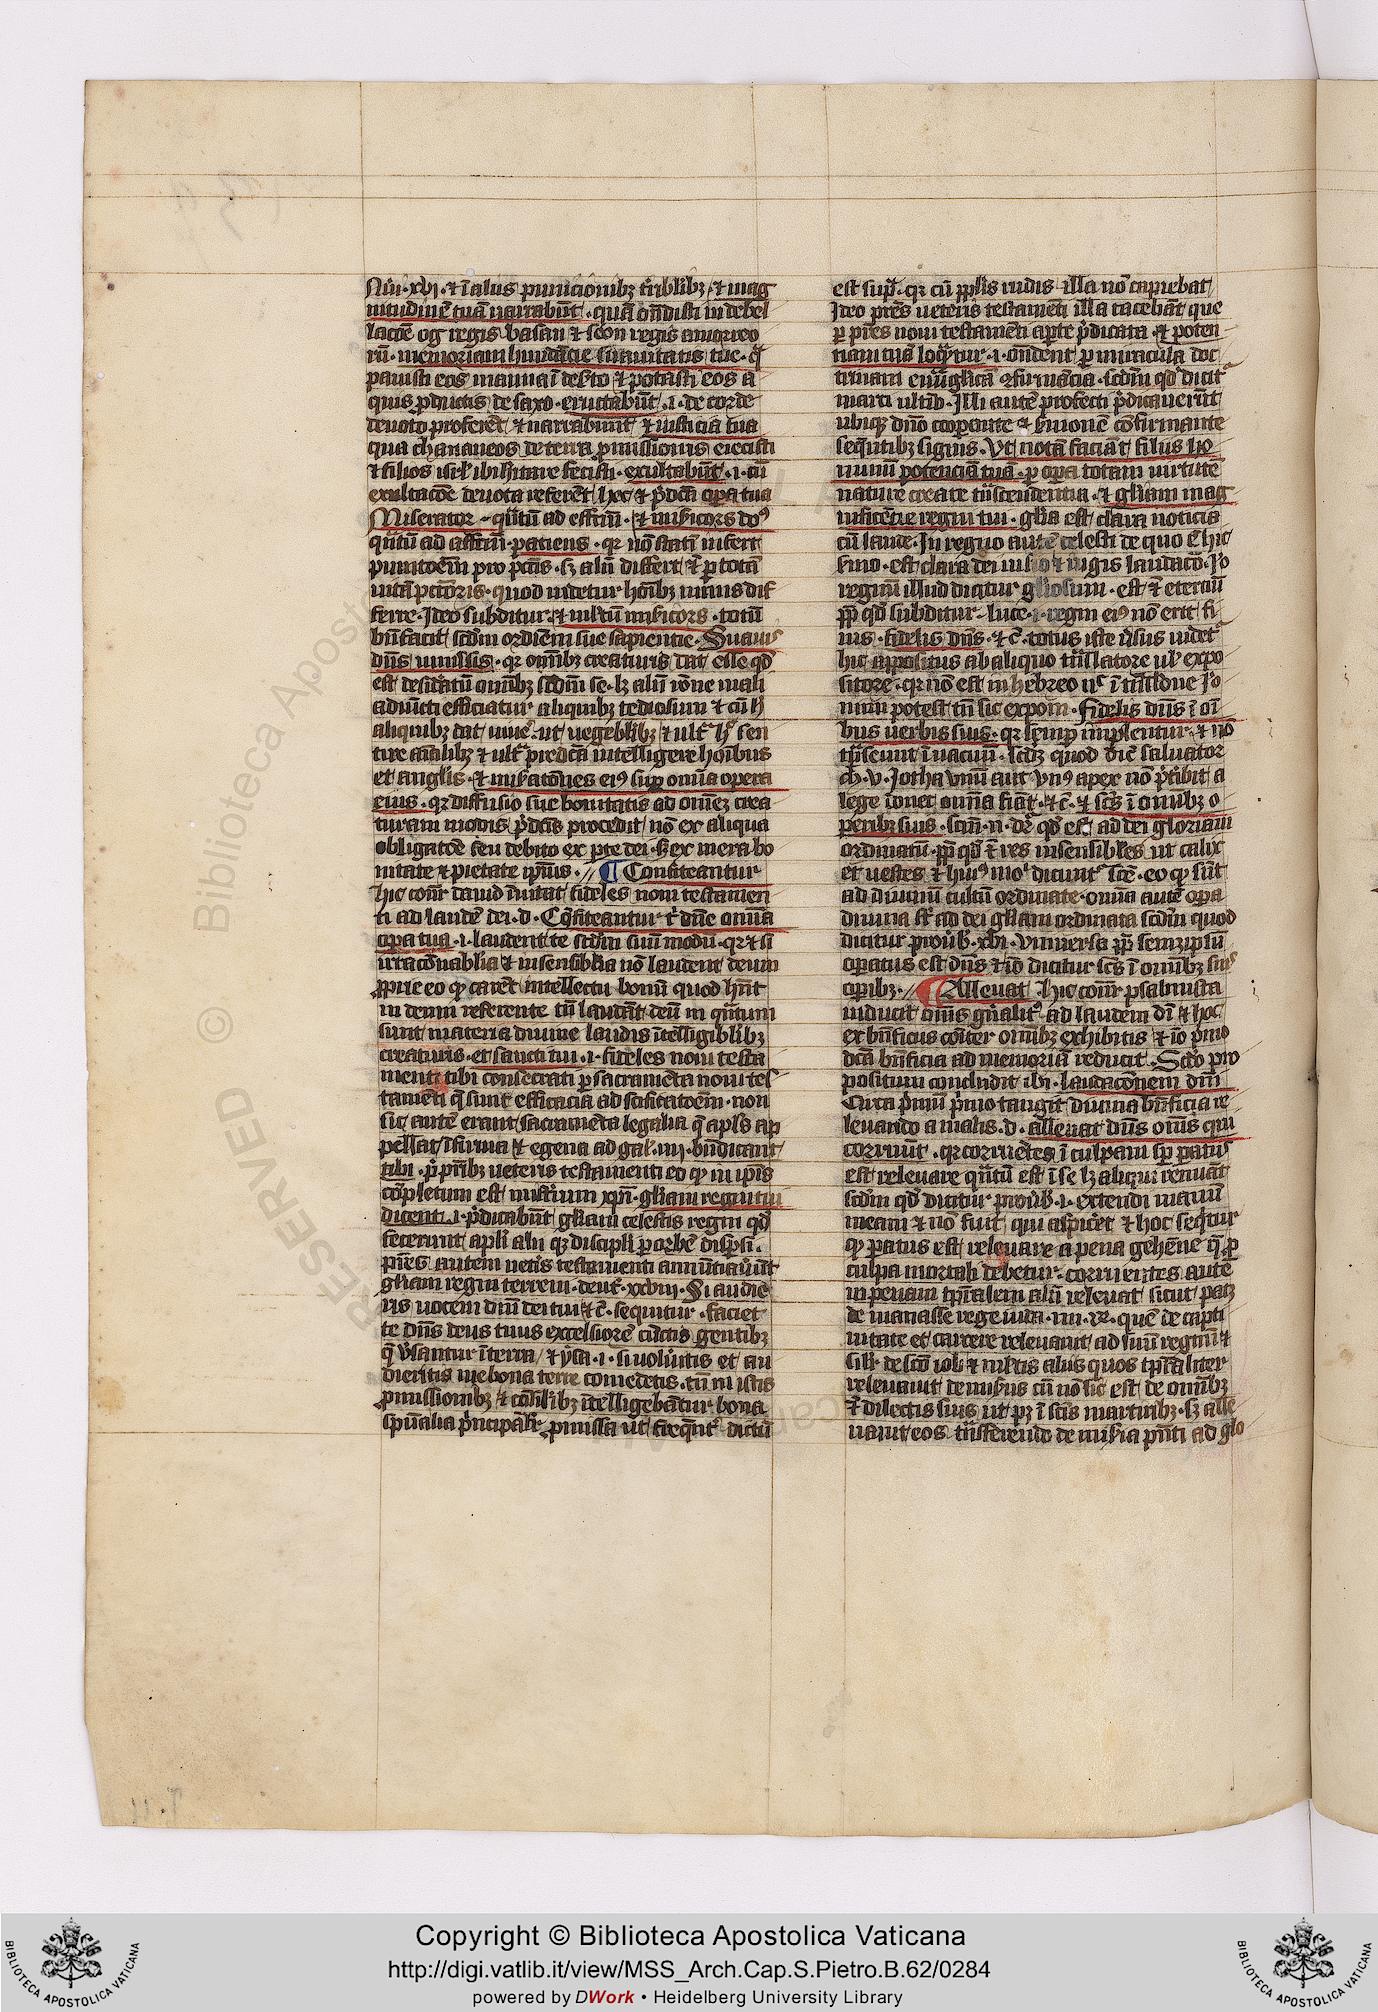 Nūi · xvi · ⁊ ī aliis punicionibꝫ t̄riblibꝫ · ⁊ mag
nitudinē tuā narrabūt · quā on̄disti in debel
lacōe og regis basan ⁊ seon regis amorreo
rū · memoriam habūdācie suauitatis tue · q̄
pauisti eos manna ī deserto ⁊ potasti eos a
quis ꝓductis de saxo · eructabūt · i · de corde
deuoto proferēt ⁊ narrabunt ⁊ iusticia tua
qua chananeos de terra ꝓmissionis eiecisti
⁊ filios isrl̄ ibi hītare fecisti · exultabūt · i · cū
exultacōe deuota referēt hec ⁊ p̄dcā opa tua
Miserator · q̄tū ad effectū · ⁊ mīsicors dn̄s
q̄tū ad affectū · patiens · qꝛ nō statī infert
punitoēm pro pctīs · sꝫ aliī differt ⁊ ꝑ totā
uitā pctōris · quod uidetur hoībꝫ nimis dif
ferre · Ideo subditur · ⁊ ml̄tū mīsicors · totū
būfacit scdm̄ ordiēm sue sapientie · Suauis
dn̄s uniuīsis · qꝛ om̄ibꝫ creaturis dat esse qd̄
est desid̄atū om̄ibꝫ scdm̄ se · lꝫ aliū rōne mali
adiuncti efficiatur aliquibꝫ tediosum ⁊ cū h̄
aliquibꝫ dat uiue᷑ · ut uegeblibꝫ ⁊ ult᷑ h̄ sen
tire aīalibꝫ ⁊ ult᷑ predcā intelligere hoībus
et anglis · ⁊ mīsatōnes eiꝰ suꝑ omīa opera
eius · qꝛ diffusio sue bonitatis ad omēꝫ crea
turam modis p̄dcīs procedit nō ex aliqua
obligatōe seu debito ex pte dei · sꝫ ex mera bo
nitate ⁊ pietate ipīus · // ¶ Confiteantur
hic cōnr̄ dauid īuitat fideles noui testamen
ti ad laudē dei · d · Cōfiteantur t̄ dn̄e omīa
opa tua · i · laudent te scdm̄ suū modū · qꝛ ⁊ si
irracōnabilia ⁊ insensiblia nō laudent deum
ꝓprie eo qꝫ carēt intellectu bonū quod hn̄t
in deum referente tn̄ laudāt deū in q̄ntum
sunt materia diuine laudis ītelligiblibꝫ
creaturis · et sancti tui · i · fideles noui testa
menti tibi consecrati ꝑ sacramēta noui tes
tamēti q̄ sunt efficacia ad scīficatoēm · non
sic autē erant sacramēta legalia q̄ apls̄ ap
pellat īfirma ⁊ egena ad gal̄ · iiii · bn̄dicant
tibi · p̄ p̄ribꝫ ueteris testamenti eo qꝫ in ipīs
cōpletum est mistīum xpī · gl̄iam regni tui
dicent · i · p̄dicabūt gl̄iam celestis regni qd̄
fecerunt apl̄i alii qꝫ discipli ꝑ orbē disꝑsi ·
p̄res autem uetīs testamenti annūtiauerūt
gl̄iam regni terreni · deut᷑ · xxviii · Si audie
ris uocem dn̄i dei tui ⁊ c̄ · sequitur · faciet
te dn̄s deus tuus excelsiorē cūctis gentibꝫ
q̄ ūsantur ī terra ⁊ ysa · i · si uolueritis et au
dieritis me bona terre comedetis · tn̄ in istis
ꝓmissionibꝫ ⁊ cōsilībꝫ ītelligebātur bona
spūalia p̄ncipal̄r ꝓmissa ut freqūt᷑ dictū
est sup̄ · qꝛ cū ppl̄s rudis illa nō capiebat
Ideo p̄res ueteris testamēti illa tacebāt que
ꝑ p̄res noui testamēti apte p̄dicata ⁊ poten
tiam tuā loqūtur · i · on̄dent ꝑ miracula doc
trinam euāglicā ꝯfirmācia · scdm̄ qd̄ dicit᷑
marci ultīo · Illi autē profecti p̄dicauerūt
ubiqꝫ dn̄o coopante ⁊ sermonē cōfirmante
seqūtibꝫ signis · Vt notā faciāt filiis ho
minū potenciā tuā · ꝑ opa totam uirtutē
nature create trāscendentia · ⁊ gl̄iam mag
nificētie regni tui · gl̄ia est clara noticia
cū laude · In regno autē celesti de quo ē hic
sermo · est clara dei uisio ⁊ iugis laudacō · Io
regnum illud dicitur gl̄iosum · est ⁊ eternū
ꝓp̄ qd̄ subditur · luce · i · regni eiꝰ nō erit fi
nis · fidelis dn̄s · ⁊ c̄ · totus iste ūsus uidet᷑
hic appositus ab aliquo trāslatore ul̄ expo
sitore · qꝛ nō est in hebreo nc̄ ī trāslōne Iero
nimi potest tn̄ sic exponi · Fidelis dn̄s ī oī
bus uerbis suis · qꝛ semꝑ implentur ⁊ nō
trāseunt ī uacuū · scdꝫ quod dic̄ saluator
mt̄ · v · Iotha vnū aut vnꝰ apex nō p̄tibit a
lege donec omīa fiāt · ⁊ c̄ · ⁊ scūs ī om̄ibꝫ o
peribꝫ suis · scm̄ · n · dr̄ qd̄ est ad dei gloriam
ordinatū · ꝓp̄ qd̄ ⁊ res insensibiles ut calix
et uestes ⁊ huiꝰ mōi dicunt᷑ scē · eo qꝫ sūt
ad diuinū cultū ordinate · omīa autē opa
diuina st̄ ad dei gl̄iam ordinata scdm̄ quod
dicitur prouerb · xvi · Vniuersa ꝓp̄ semꝫip̄sū
opatus est dn̄s ⁊ iō dicitur scūs ī om̄ibꝫ suis
opibꝫ · // ¶ Alleuat · hic cōnr̄ psalmista
inducit om̄is gn̄alit᷑ ad laudem dī ⁊ hoc
ex bn̄ficus cōiter om̄ibꝫ exhibitis ⁊ iō p̄mo
dicā bn̄ficia ad memoriā reducit · Scd̄o pro
positum concludit ibi · laudacōnem dn̄i
Circa p̄mū p̄mo tangit diuina bn̄ficia re
leuando a malis · d · alleuat dn̄s om̄s qui
corruūt · qꝛ corruētes ī culpam sp̄ patus
est releuare q̄ntū est ī se lꝫ aliqui renuāt
scdm̄ qd̄ dicitur prouerb · i · extendi manū
meam ⁊ nō fuit qui aspic̄et ⁊ hoc seq̄tur
qꝫ patus est releuare a pena gehēne q̄ ꝓ
culpa mortali debetur · corruentes autē
in penam tꝑalem aliū releuat sicut patꝫ
de manasse rege iuda · iiii · re · quē de capti
uitate et carcere releuauit ad suū regnū ⁊
silr̄ de scō iob ⁊ ml̄tis aliis quos tꝑaliter
releuauit de miseriis cū nō sic est de om̄ibꝫ
⁊ dilectis suis ut pꝫ ī scīs martiribꝫ · sꝫ alle
uauit eos trāsferendo de miseria p̄nti ad glo
Copyright © Biblioteca Apostolica Vaticana
http://digi.vatlib.it/view/MSS_Arch.Cap.S.Pietro.B.62/0284
powered by DWork • Heidelberg University Library